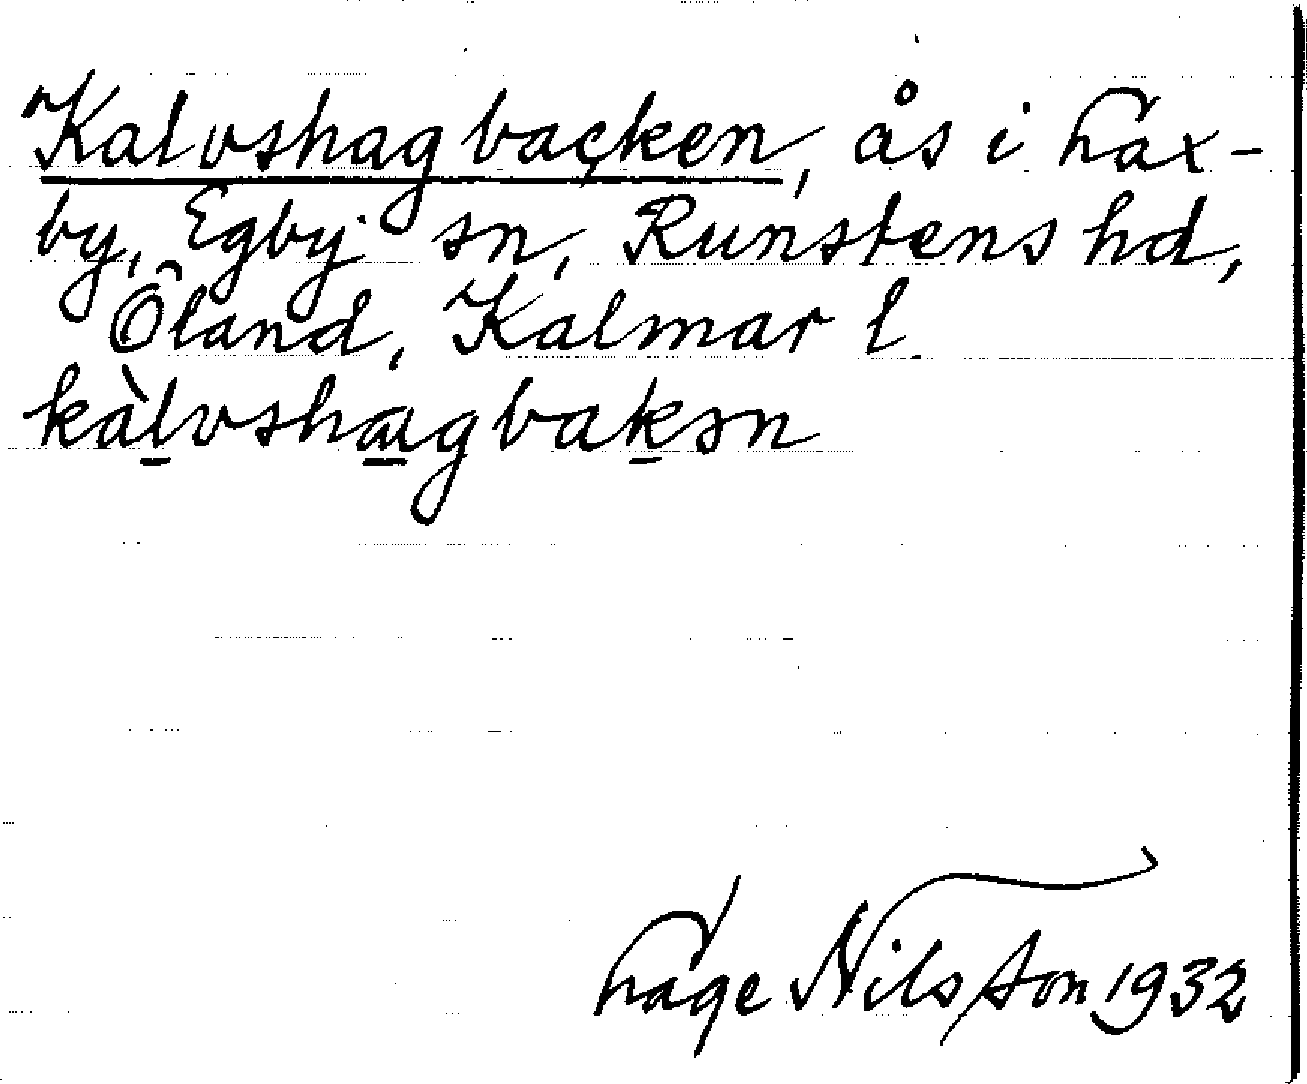 Kalvshagbacken, ås i Tax-
by, Egby sn, Runstens hd,
Öland, Kalmar l.
kàlvshagbakən
Tage Nilsson 1932